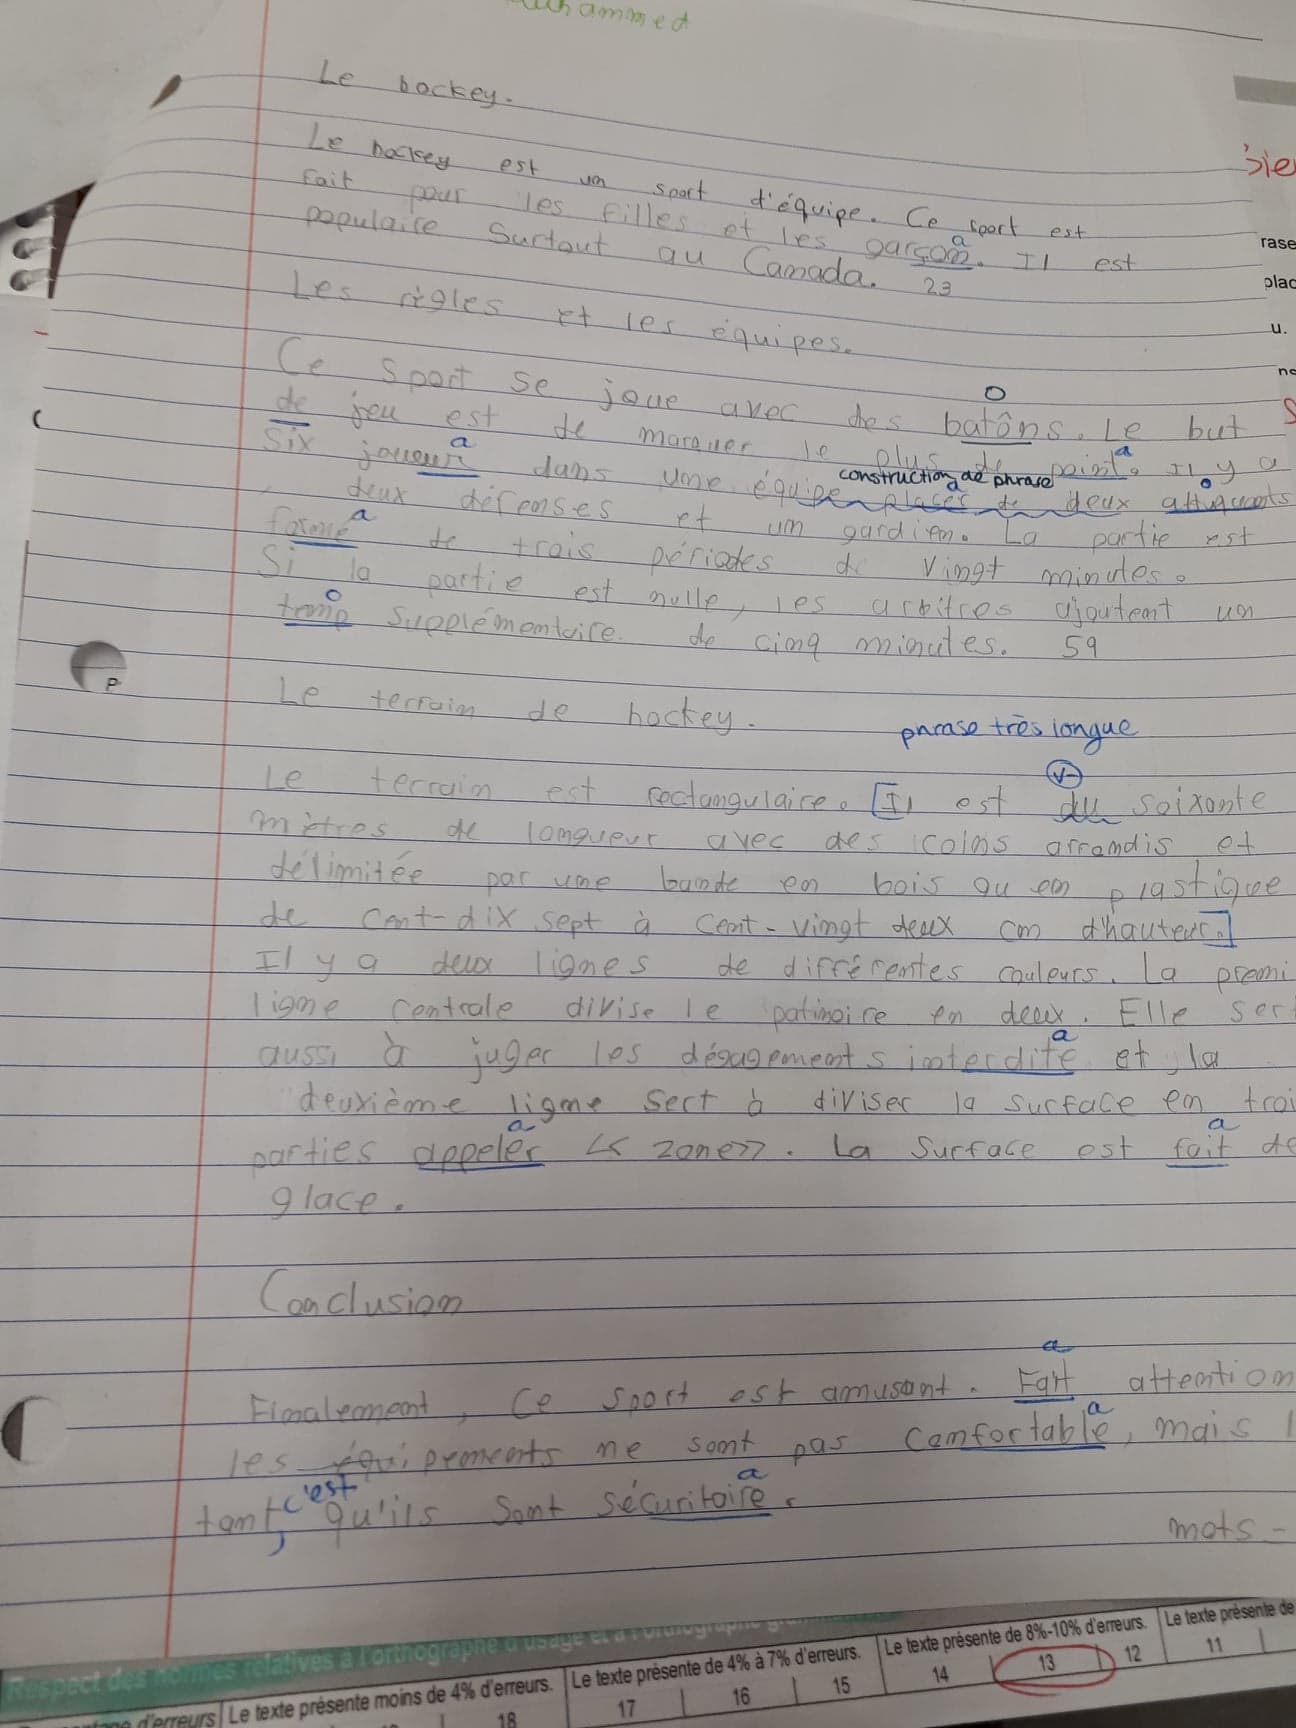 Le hockey.
Le hockey est un sport d'équipe. Ce sport est
fait pour les filles et les garçon. Il est
a
populaire surtout au Canada. 23
Les règles et les équipes.
Ce sport se joue avec des batôns. Le but
o
de jeu est de marquer le plus de point. Il y a
a
six joueur dans une équipe placés de deux attaquants
a
construction de phrase
o
deux défenses et un gardien. La partie est
formé de trois périodes de vingt minutes.
a
Si la partie est nulle, les arbitres ajoutent un
temp supplémentaire de cinq minutes. 59
o
Le terrain de hockey.
phrase très longue
Le terrain est rectangulaire. [Il est du soixante
V
mètres de longueur avec des coins arrondis et
délimitée par une bande en bois ou en plastique
de cent-dix sept à cent-vingt deux cm d'hauteur.]
Il y a deux lignes de différentes couleurs. La premi
ligne centrale divise le patinoire en deux. Elle ser
aussi à juger les dégagements interdite et la
a
deuxième ligne sert à diviser la surface en troi
parties appeler << zone>>. La surface est fait de
a
a
glace.
Conclusion
Finalement, ce sport est amusant. Fait attention
a
les équipements ne sont pas confortable, mais
a
tant, c'est qu'ils sont sécuritaire.
a
mots -
Respect des normes relatives à l'orthographe d'usage et à l'orthographe
d'erreurs
Le texte présente moins de 4% d'erreurs.
Le texte présente de 4% à 7% d'erreurs.
Le texte présente de 8%-10% d'erreurs.
Le texte présente de
18
17
16
15
14
13
12
11
rase
plac
u.